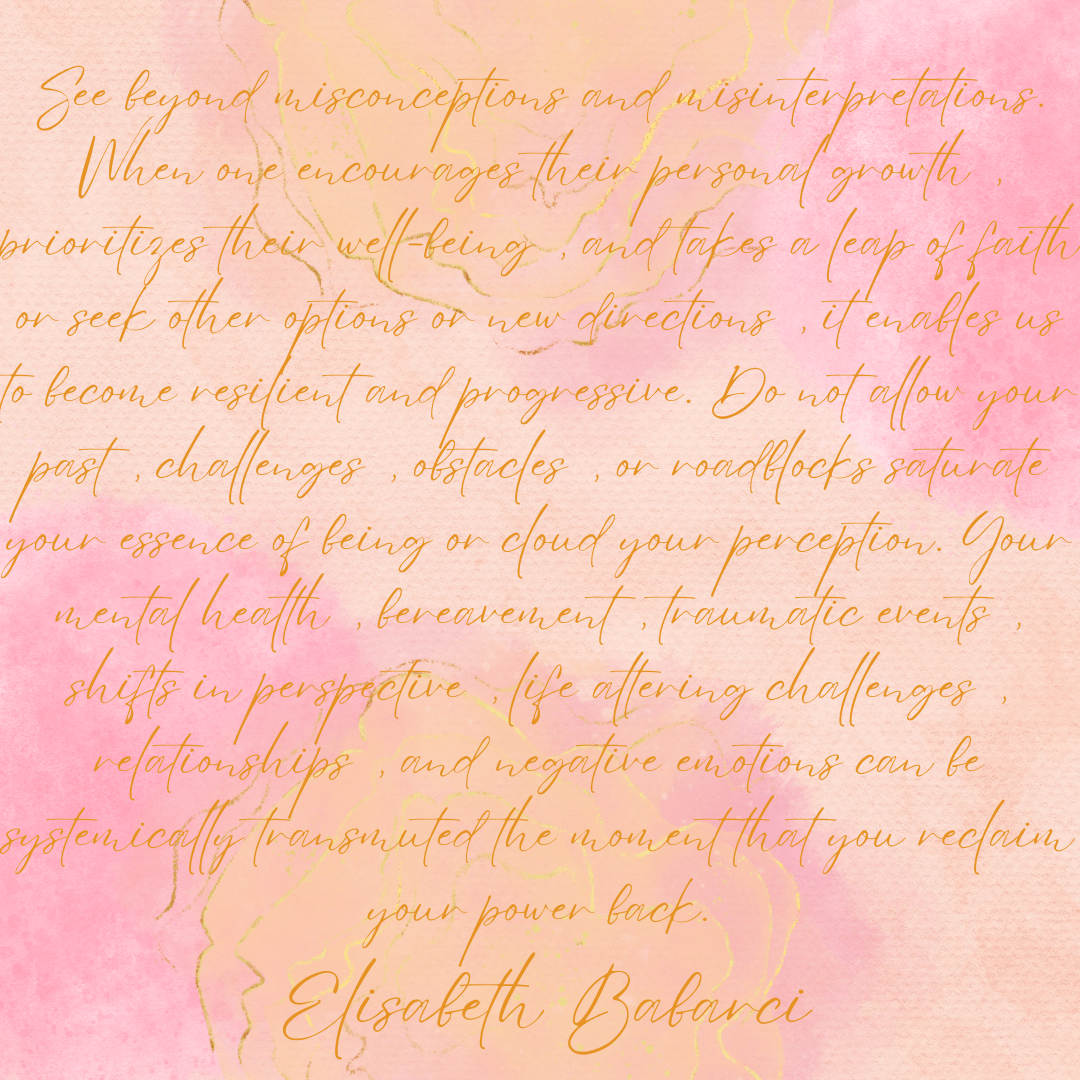 See beyond misconceptions and misinterpretations.
When one encourages their personal growth ,
prioritizes their well-being , and takes a leap of faith
or seek other options or new directions , it enables us
to become resilient and progressive. Do not allow your
past , challenges , obstacles , or roadblocks saturate
your essence of being or cloud your perception. Your
mental health , bereavement , traumatic events ,
shifts in perspective , life altering challenges ,
relationships , and negative emotions can be
systemically transmuted the moment that you reclaim
your power back.
Elisabeth Babarci